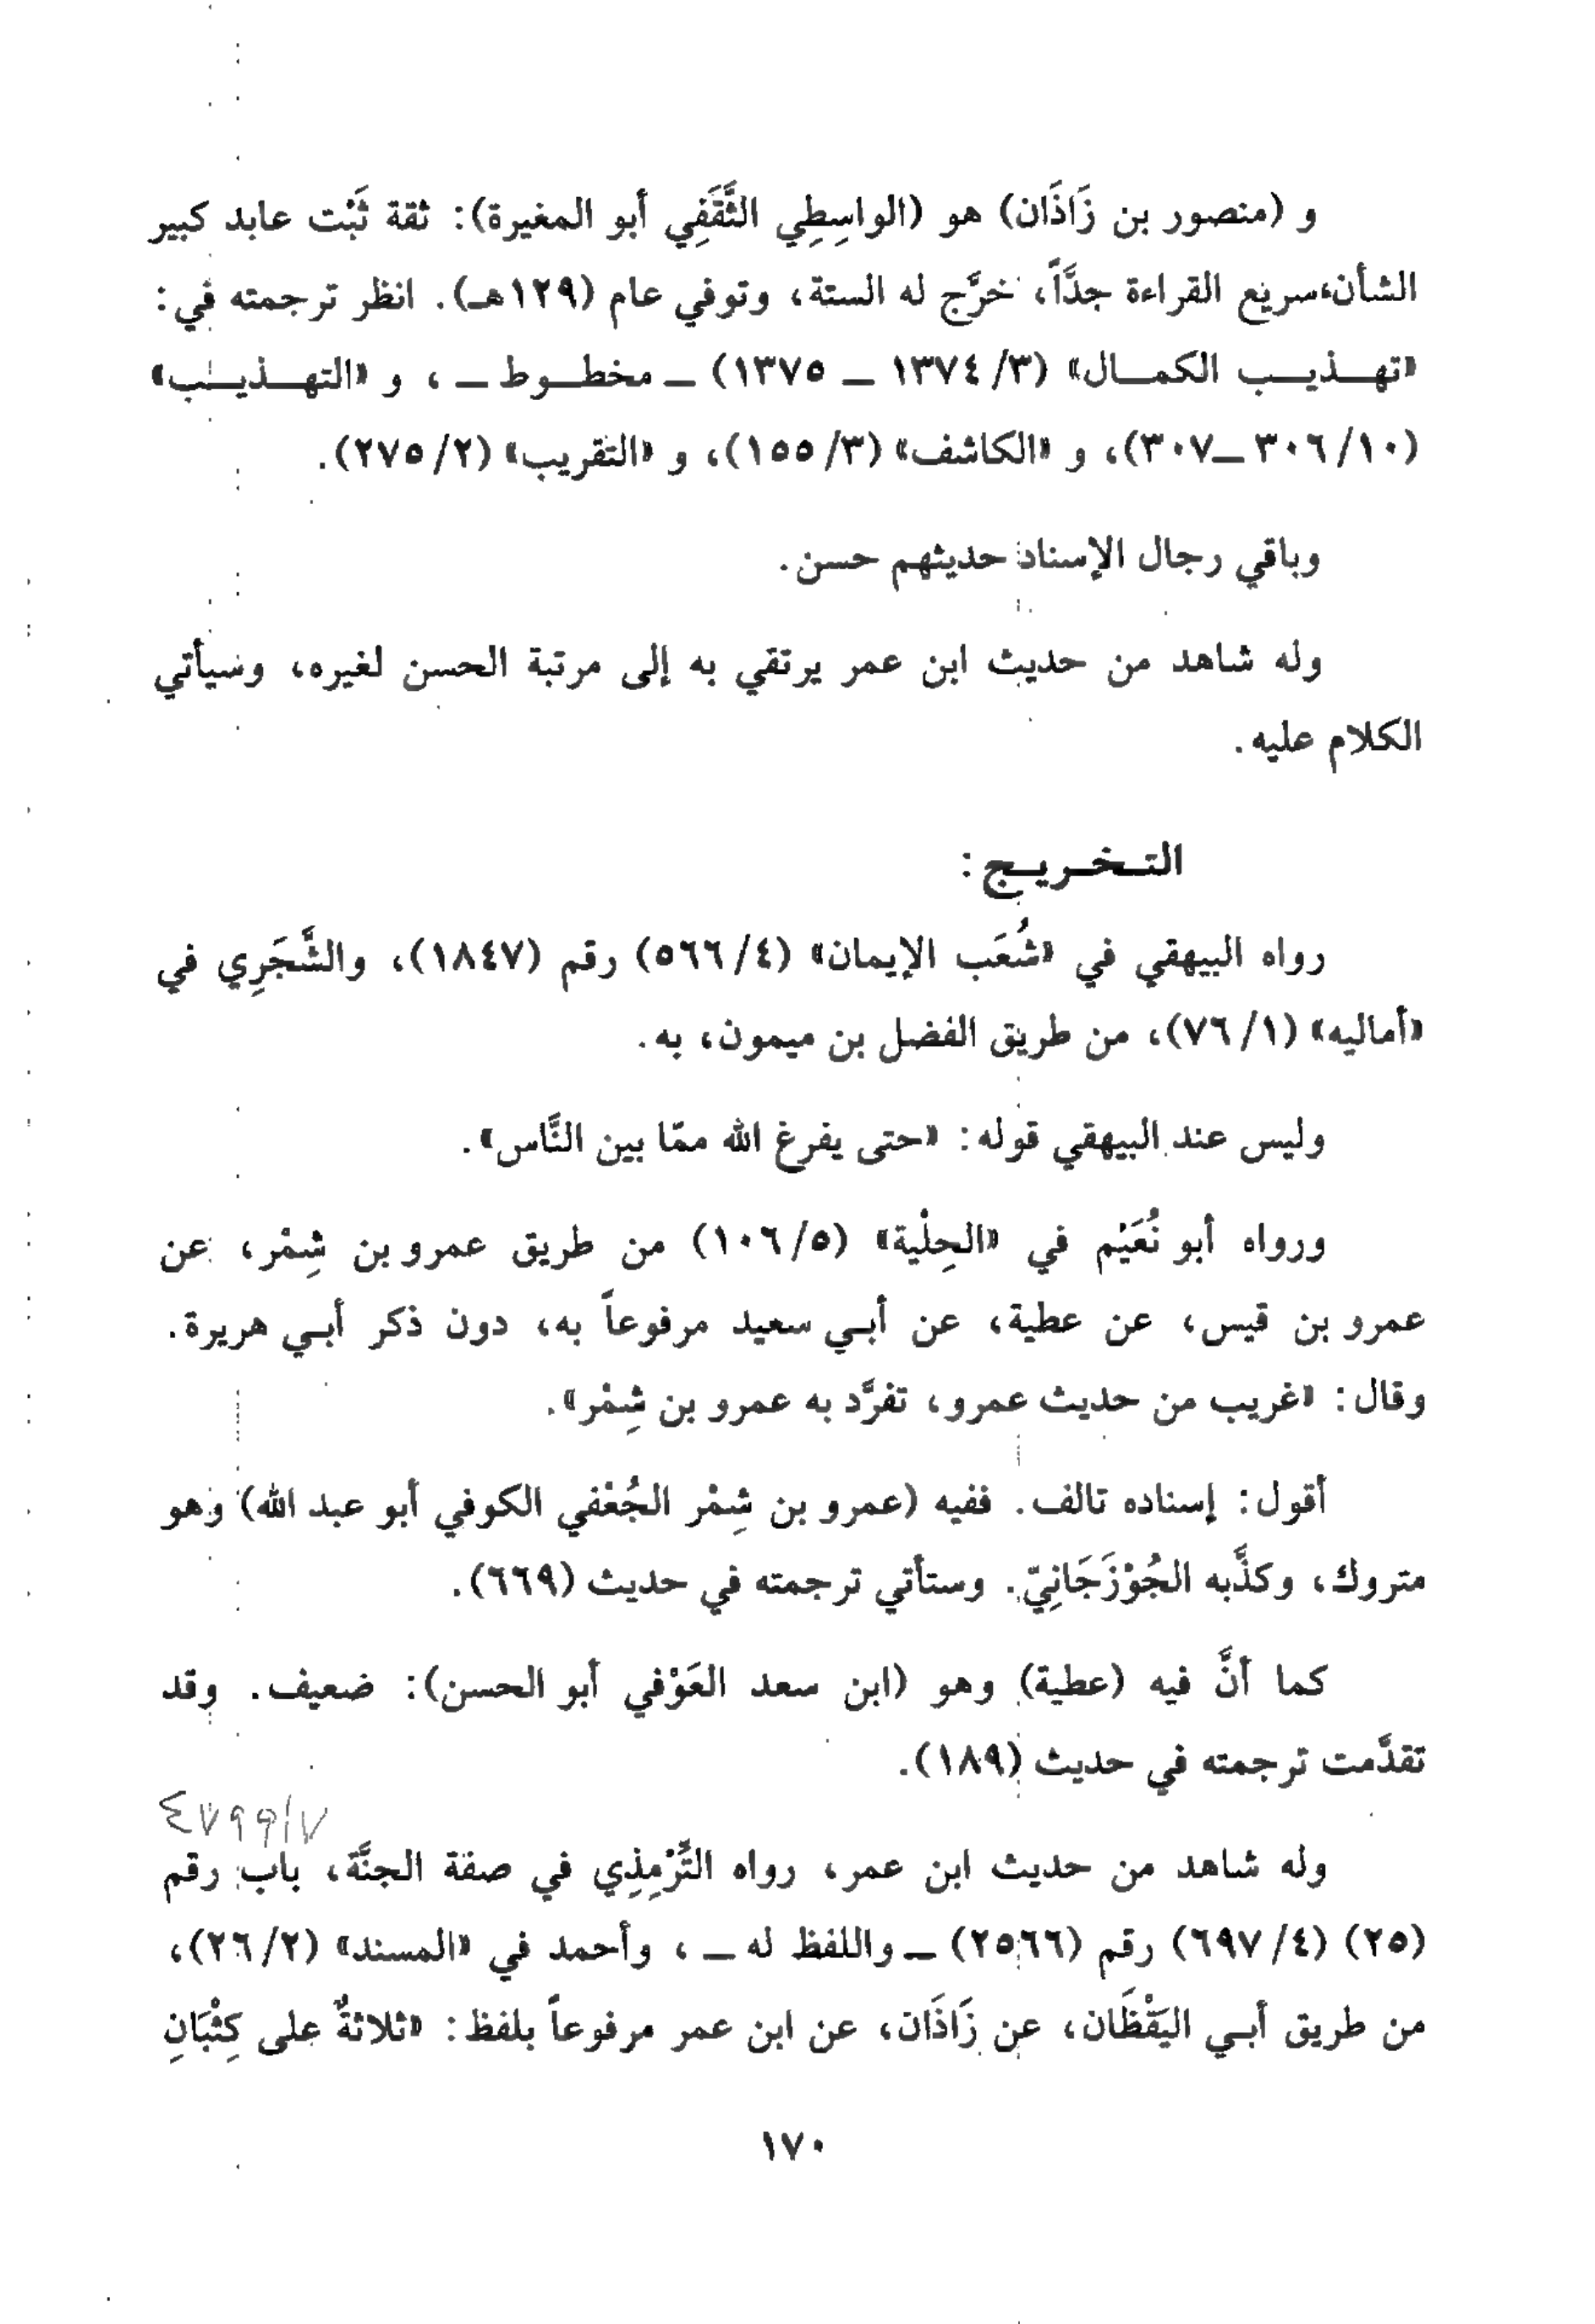 و (منصور بن زَاذَان) هو (الواسِطِي الثَّقَفِي أبو المغيرة): ثقة ثَبْت عابد كبير
الشأن، سريع القراءة جدَّاً، خرَّج له الستة، وتوفي عام (١٢٩هـ). انظر ترجمته في:
«تهـذيـب الكمـال» (٣/ ١٣٧٤ ــ ١٣٧٥) ــ مخطـوط ــ ، و «التهـذيـب»
(١٠/ ٣٠٦ ــ ٣٠٧)، و «الكاشف» (٣/ ١٥٥)، و «التقريب» (٢/ ٢٧٥).
وباقي رجال الإسناد حديثهم حسن.
وله شاهد من حديث ابن عمر يرتقي به إلى مرتبة الحسن لغيره، وسيأتي
الكلام عليه.
التـخـريـج:
رواه البيهقي في «شُعَب الإيمان» (٤/ ٥٦٦) رقم (١٨٤٧)، والشَّجَرِي في
«أماليه» (١/ ٧٦)، من طريق الفضل بن ميمون، به.
وليس عند البيهقي قوله: «حتى يفرغ الله ممّا بين النَّاس».
ورواه أبو نُعَيْم في «الحِلْية» (٥/ ١٠٦) من طريق عمرو بن شِمْر، عن
عمرو بن قيس، عن عطية، عن أبـي سعيد مرفوعاً به، دون ذكر أبـي هريرة.
وقال: «غريب من حديث عمرو، تفرَّد به عمرو بن شِمْر».
أقول: إسناده تالف. ففيه (عمرو بن شِمْر الجُعْفي الكوفي أبو عبد الله) وهو
متروك، وكذَّبه الجُوْزَجَانِيّ. وستأتي ترجمته في حديث (٦٦٩).
كما أنَّ فيه (عطية) وهو (ابن سعد العَوْفي أبو الحسن): ضعيف. وقد
تقدَّمت ترجمته في حديث (١٨٩).
وله شاهد من حديث ابن عمر، رواه التِّرْمِذِي في صفة الجنَّة، باب رقم
(٢٥) (٤/ ٦٩٧) رقم (٢٥٦٦) ــ واللفظ له ــ ، وأحمد في «المسند» (٢/ ٢٦)،
من طريق أبـي اليَقْظَان، عن زَاذَان، عن ابن عمر مرفوعاً بلفظ: «ثلاثةٌ على كِثْبَانِ
١٧٠